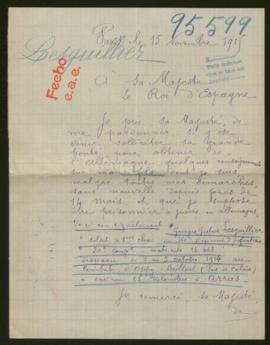 95599
Lesquillier
Paris, le 15 Novembre 191
Fecho
e.a.e.
A Sa Majesté
Le Roi d'Espagne
Je prie Sa Majesté, de
me pardonner si j'ose
venir solliciter sa Grande
Bonté, pour obtenir de
l'Allemagne, quelques renseignements
sur mon fils dont je suis
malgré toutes mes démarches,
sans nouvelle depuis près de
14 mois, et que je suppose
être prisonnier de guerre en Allemagne.
Voici son signalement: Georges Lesquillier
Soldat de 1ère classe au Régiment d'infanterie
20e Comp matricule
disparu le 2 Octobre 1914 au
Combat d'Oppy-Bailleul (Pas de Calais)
à environ Kilomètres d'Arras
Je remercie Sa Majesté